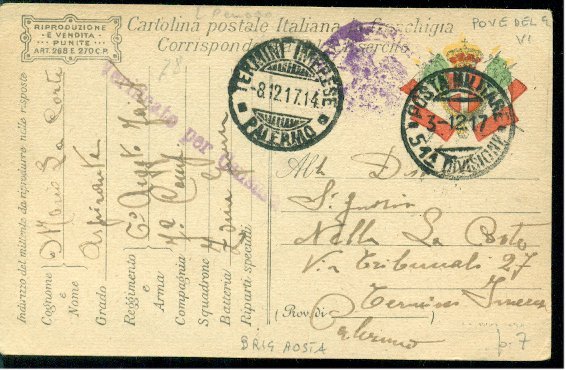 RIPRODUZIONE
E VENDITA
PUNITE
ART. 268 E 270 C.P.
Cartolina postale Italiana in franchigia
Corrispondenza Esercito
POVE DEL G
VI
TERMINI IMERESE
-8.12.17.14
PALERMO
POSTA MILITARE
3-12.17
51A DIVISIONE
Verificato per Censura
Indirizzo del mittente da riprodursi nelle risposte
Cognome e Nome
Mario La Corte
Grado
Aspirante
Reggimento e Arma
6° Regg.to
Compagnia
7a Comp.
Squadrone
Batteria
Zona
Riparti speciali
Alla
Signorina
Nella La Corte
Via Tribunali 27
Termini Imerese
(Prov. di
Palermo
BRIG AOSTA
p. 7